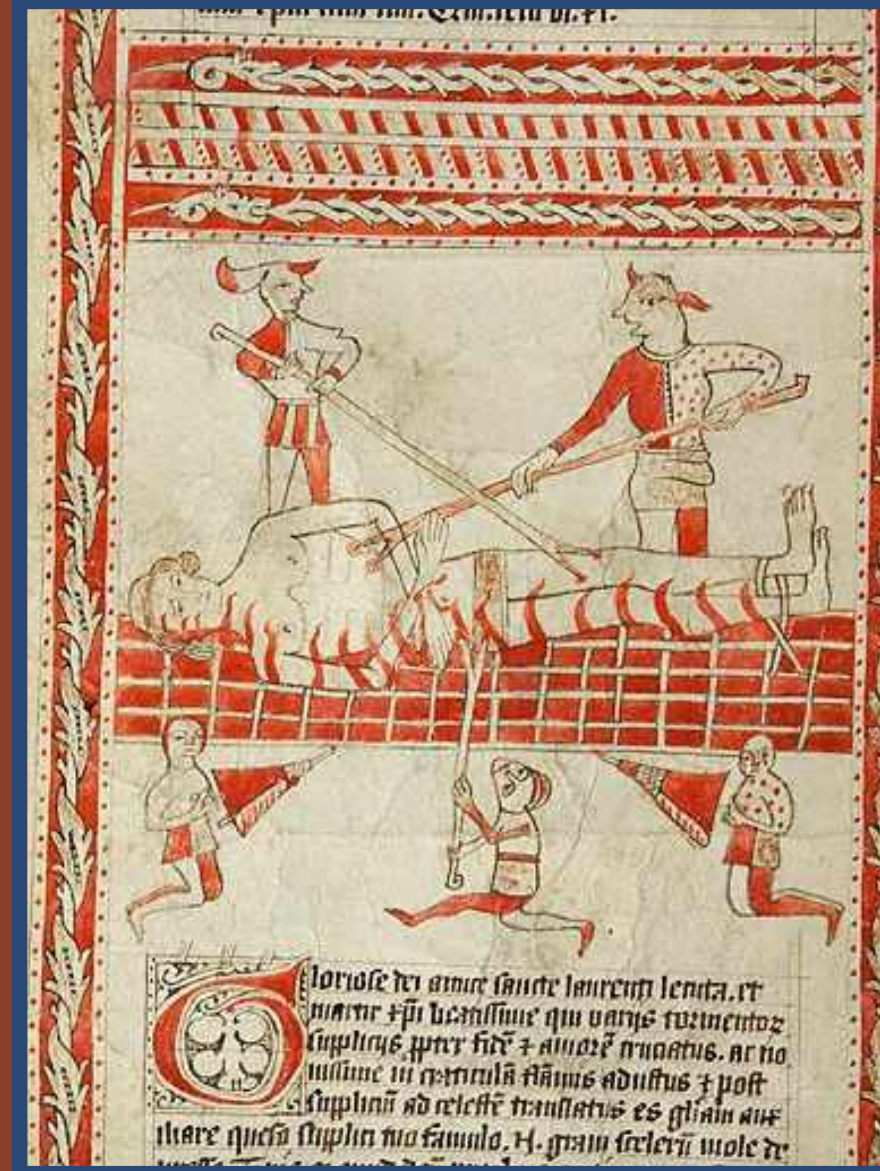 loriose dei amice sancte laurenti leuita. et
martir xp̄i beatissime qui varijs tormentoꝝ
supplicijs ꝓpter fidē ⁊ amorē cruciatus. ac no
uissime in craticulā flāmis adustus ⁊ post
suppliciū ad celestē translatus es gliam aux
iliare queso supplici tuo famulo. N. graui scelerū mole de